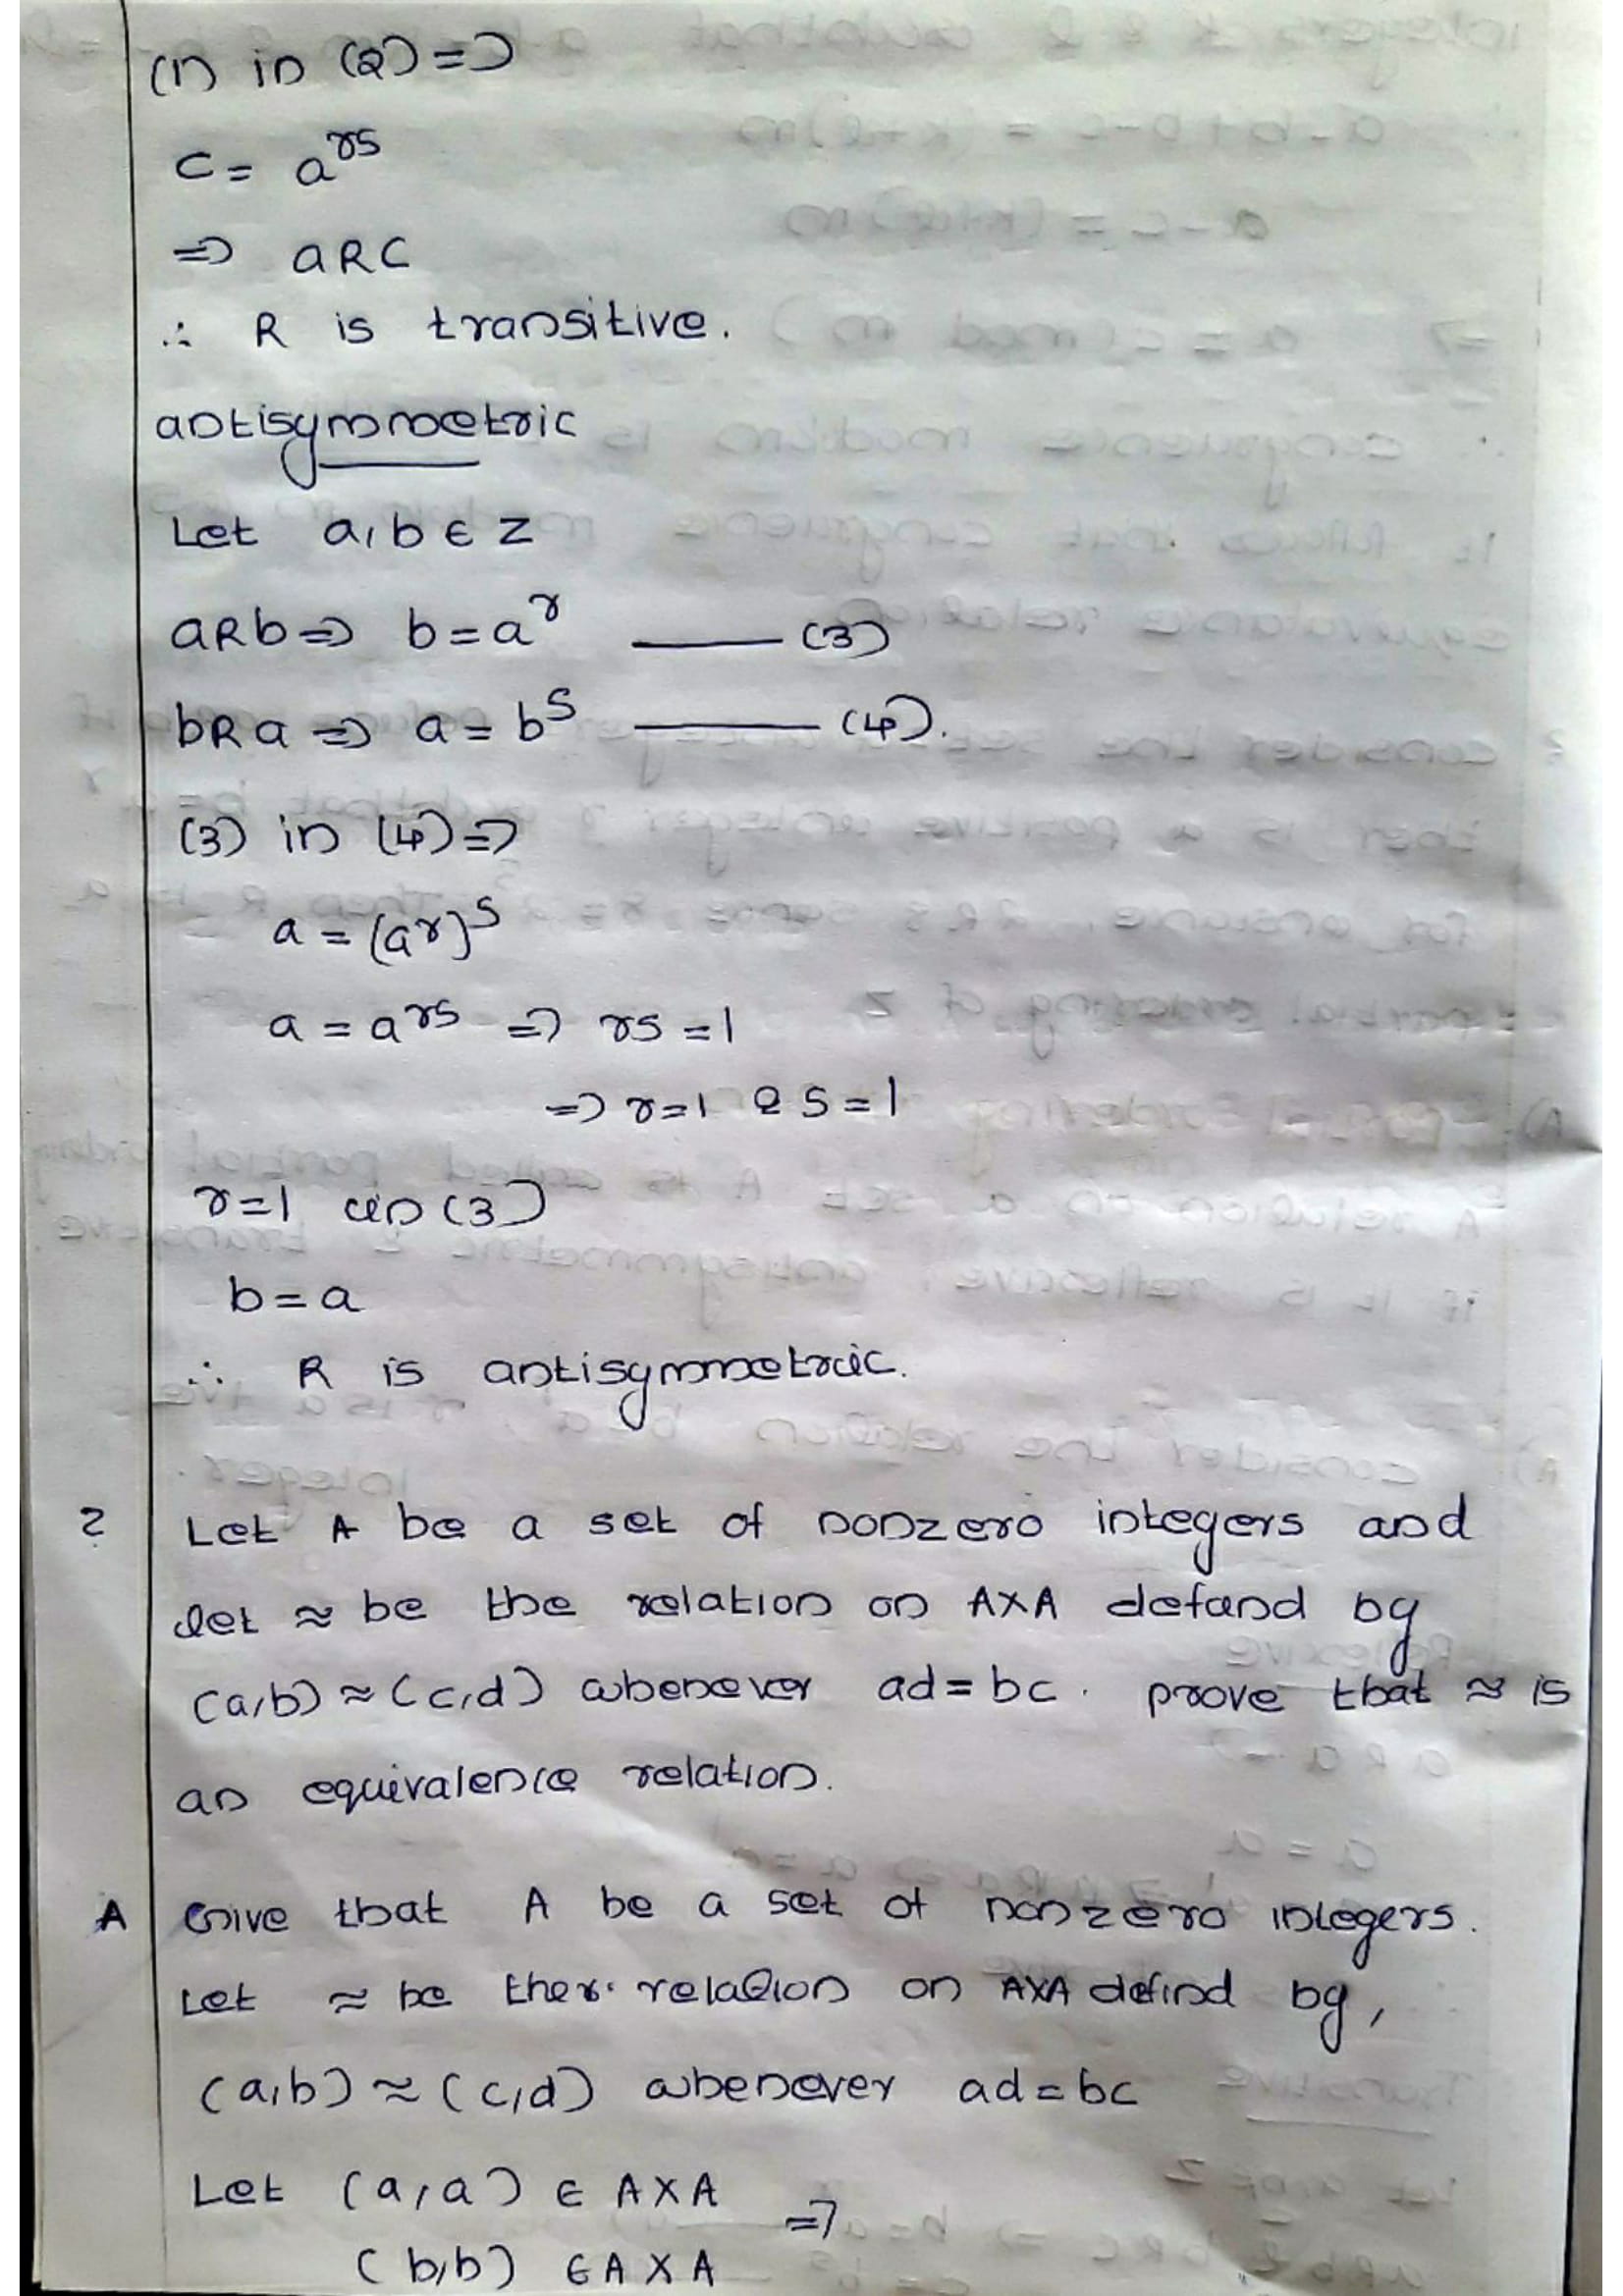 (1) in (2) =>
c = a^rs
=> aRc
∴ R is transitive.
antisymmetric
Let a, b ∈ Z
aRb => b = a^r —— (3)
bRa => a = b^s —— (4).
(3) in (4) =>
a = (a^r)^s
a = a^rs => rs = 1
=> r=1 & s=1
r=1 in (3)
b = a
∴ R is antisymmetric.
? Let A be a set of nonzero integers and
let ≈ be the relation on A×A defind by
(a,b) ≈ (c,d) whenever ad = bc. prove that ≈ is
an equivalence relation.
A Give that A be a set of nonzero integers.
Let ≈ be the relation on A×A defind by,
(a,b) ≈ (c,d) whenever ad = bc
Let (a,a) ∈ A×A =>
(b,b) ∈ A×A